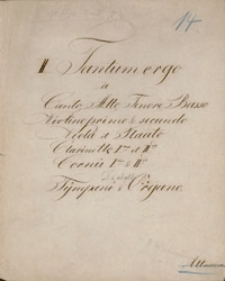 14
II Tantum ergo
a
Canto, Alto Tenore Basso
Violino primo & secundo
Viola et Flauto
Clarinetto 1mo et IIdo
Cornu 1mo & IIdo
Tÿmpani & Organo